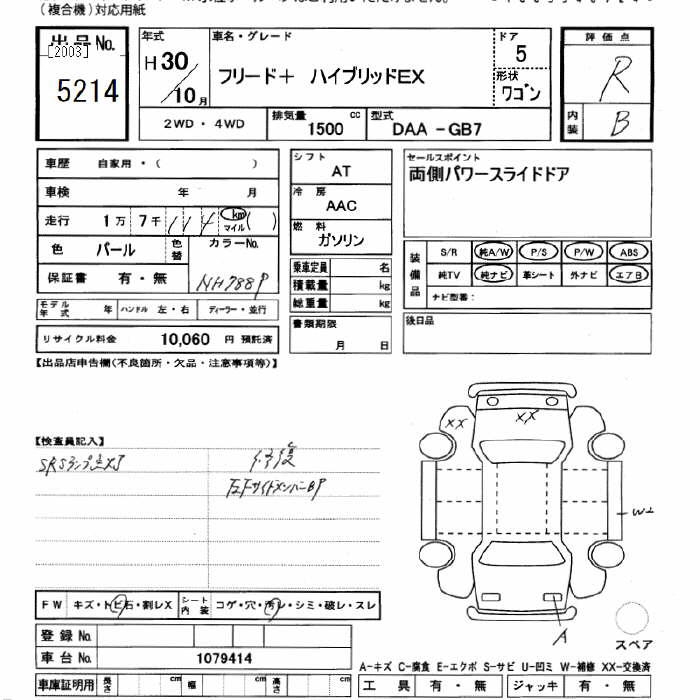 (複合機)対応用紙
出品No.
[2003]
5214
年式
H30/10月
車名・グレード
フリード＋ ハイブリッドEX
ドア
5
形状
ワゴン
評価点
R
内装
B
2WD・4WD
排気量
1500 cc
型式
DAA -GB7
車歴 自家用・( )
車検 年 月
走行 1万 7千 114 km マイル ( )
色 パール 色替 カラーNo.
保証書 有・無 NH788P
モデル年式 年 ハンドル 左・右 ディーラー・並行
リサイクル料金 10,060 円 預託済
シフト
AT
冷房
AAC
燃料
ガソリン
乗車定員 名
積載量 kg
総重量 kg
書類期限
月 日
セールスポイント
両側パワースライドドア
装備品
S/R 純A/W P/S P/W ABS
純TV 純ナビ 革シート 外ナビ エアB
ナビ型番：
後日品
【出品店申告欄(不良箇所・欠品・注意事項等)】
【検査員記入】
修復
FW キズ・トビ石・割レX シート内装 コゲ・穴・汚レ・シミ・破レ・スレ
登録No.
車台No. 1079414
車庫証明用 長さ cm 幅 cm 高さ cm
XX
XX
A
スペア
A-キズ C-腐食 E-エクボ S-サビ U-凹ミ W-補修 XX-交換済
工具 有・無 ジャッキ 有・無